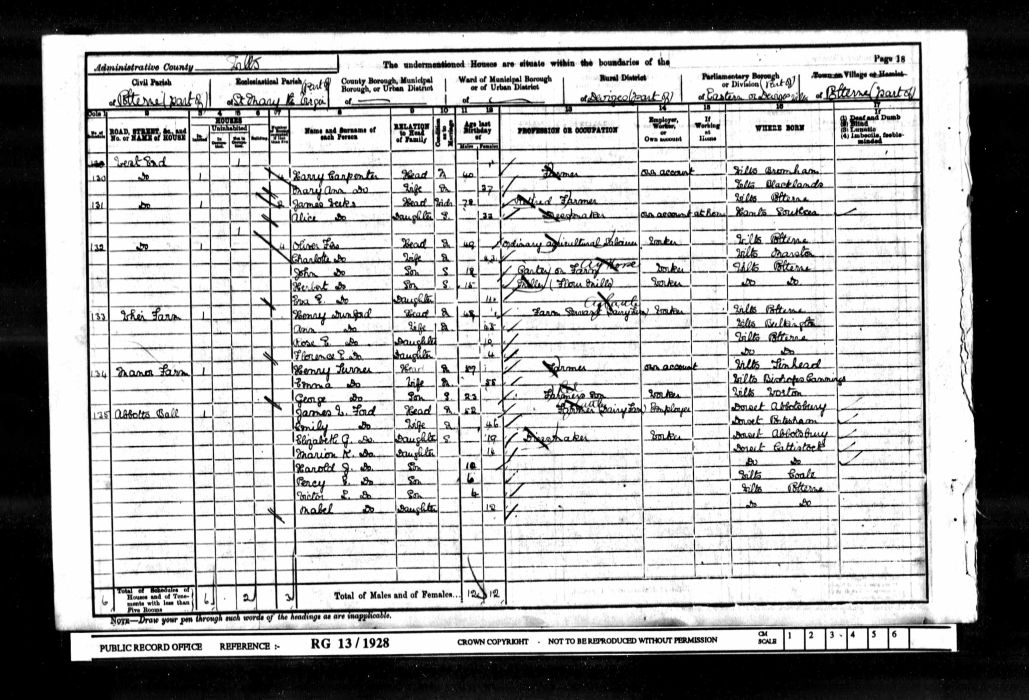 Administrative County Wilts The undermentioned Houses are situate within the boundaries of the Page 18
Civil Parish Ecclesiastical Parish County Borough, Municipal Borough, or Urban District Ward of Municipal Borough or of Urban District Rural District Parliamentary Borough or Division (Part of) Town or Village or Hamlet
of Potterne (part of) of St Mary (Part of) of of of Devizes (part of) of Eastern or Devizes of Potterne (part of)
ROAD, STREET, &c., and No. or NAME of HOUSE HOUSES Uninhabited Name and Surname of each Person RELATION to Head of Family Age last Birthday of Males Females PROFESSION OR OCCUPATION Employer, Worker, or Own account If Working at Home WHERE BORN (1) Deaf and Dumb (2) Blind (3) Lunatic (4) Imbecile, feeble-minded
West End 1
130 Do 1 4 Harry Carpenter Head M 40 Farmer own account Wilts Bromham
Mary Ann Do Wife M 27 Wilts Blacklands
131 Do 1 2 James Head Wid 78 Retired Farmer Wilts Potterne
Alice Do Daughter S 32 Dressmaker own account at Home Hants Southsea
1
132 Do 1 4 Oliver Head M 49 Ordinary agricultural labourer Worker Wilts Potterne
Charlotte Do Wife M Wilts Marston
John Do Son S 18 Carter on Farm Worker Wilts Potterne
Herbert Do Son S 15 (Flour Mills) Worker Do Do
Eva E. Do Daughter 11
133 Farm 1 Henry Head M 48 Farm Steward Worker Wilts Potterne
Ann Do Wife M 45 Wilts Bulkington
Rose E. Do Daughter 12 Wilts Potterne
Florence E. Do Daughter 4 Do Do
134 Manor Farm 1 Henry Turner Head M 57 Farmer own account Wilts Tinhead
Emma Do Wife M 55 Wilts Bishops Cannings
George Do Son S 23 Farmers Son Worker Wilts Worton
135 Abbotts Ball 1 James W. Ford Head M 52 Farmer (Dairy Farm) Employer Dorset Abbotsbury
Emily Do Wife M 46 Dorset Portesham
Elizabeth G. Do Daughter S 19 Dressmaker Worker Dorset Abbotsbury
Marion K. Do Daughter 14 Dorset Cattistock
Harold J. Do Son 10 Do Do
Percy Do Son 6 Wilts Coate
Victor L. Do Son 4 Wilts Potterne
Mabel Do Daughter 12 Do Do
6 Total of Schedules of Houses and of Tenements with less than Five Rooms 6 2 3 Total of Males and of Females... 12 12
NOTE—Draw your pen through such words of the headings as are inapplicable.
PUBLIC RECORD OFFICE REFERENCE :- RG 13/1928 CROWN COPYRIGHT - NOT TO BE REPRODUCED WITHOUT PERMISSION CM SCALE 1 2 3 4 5 6